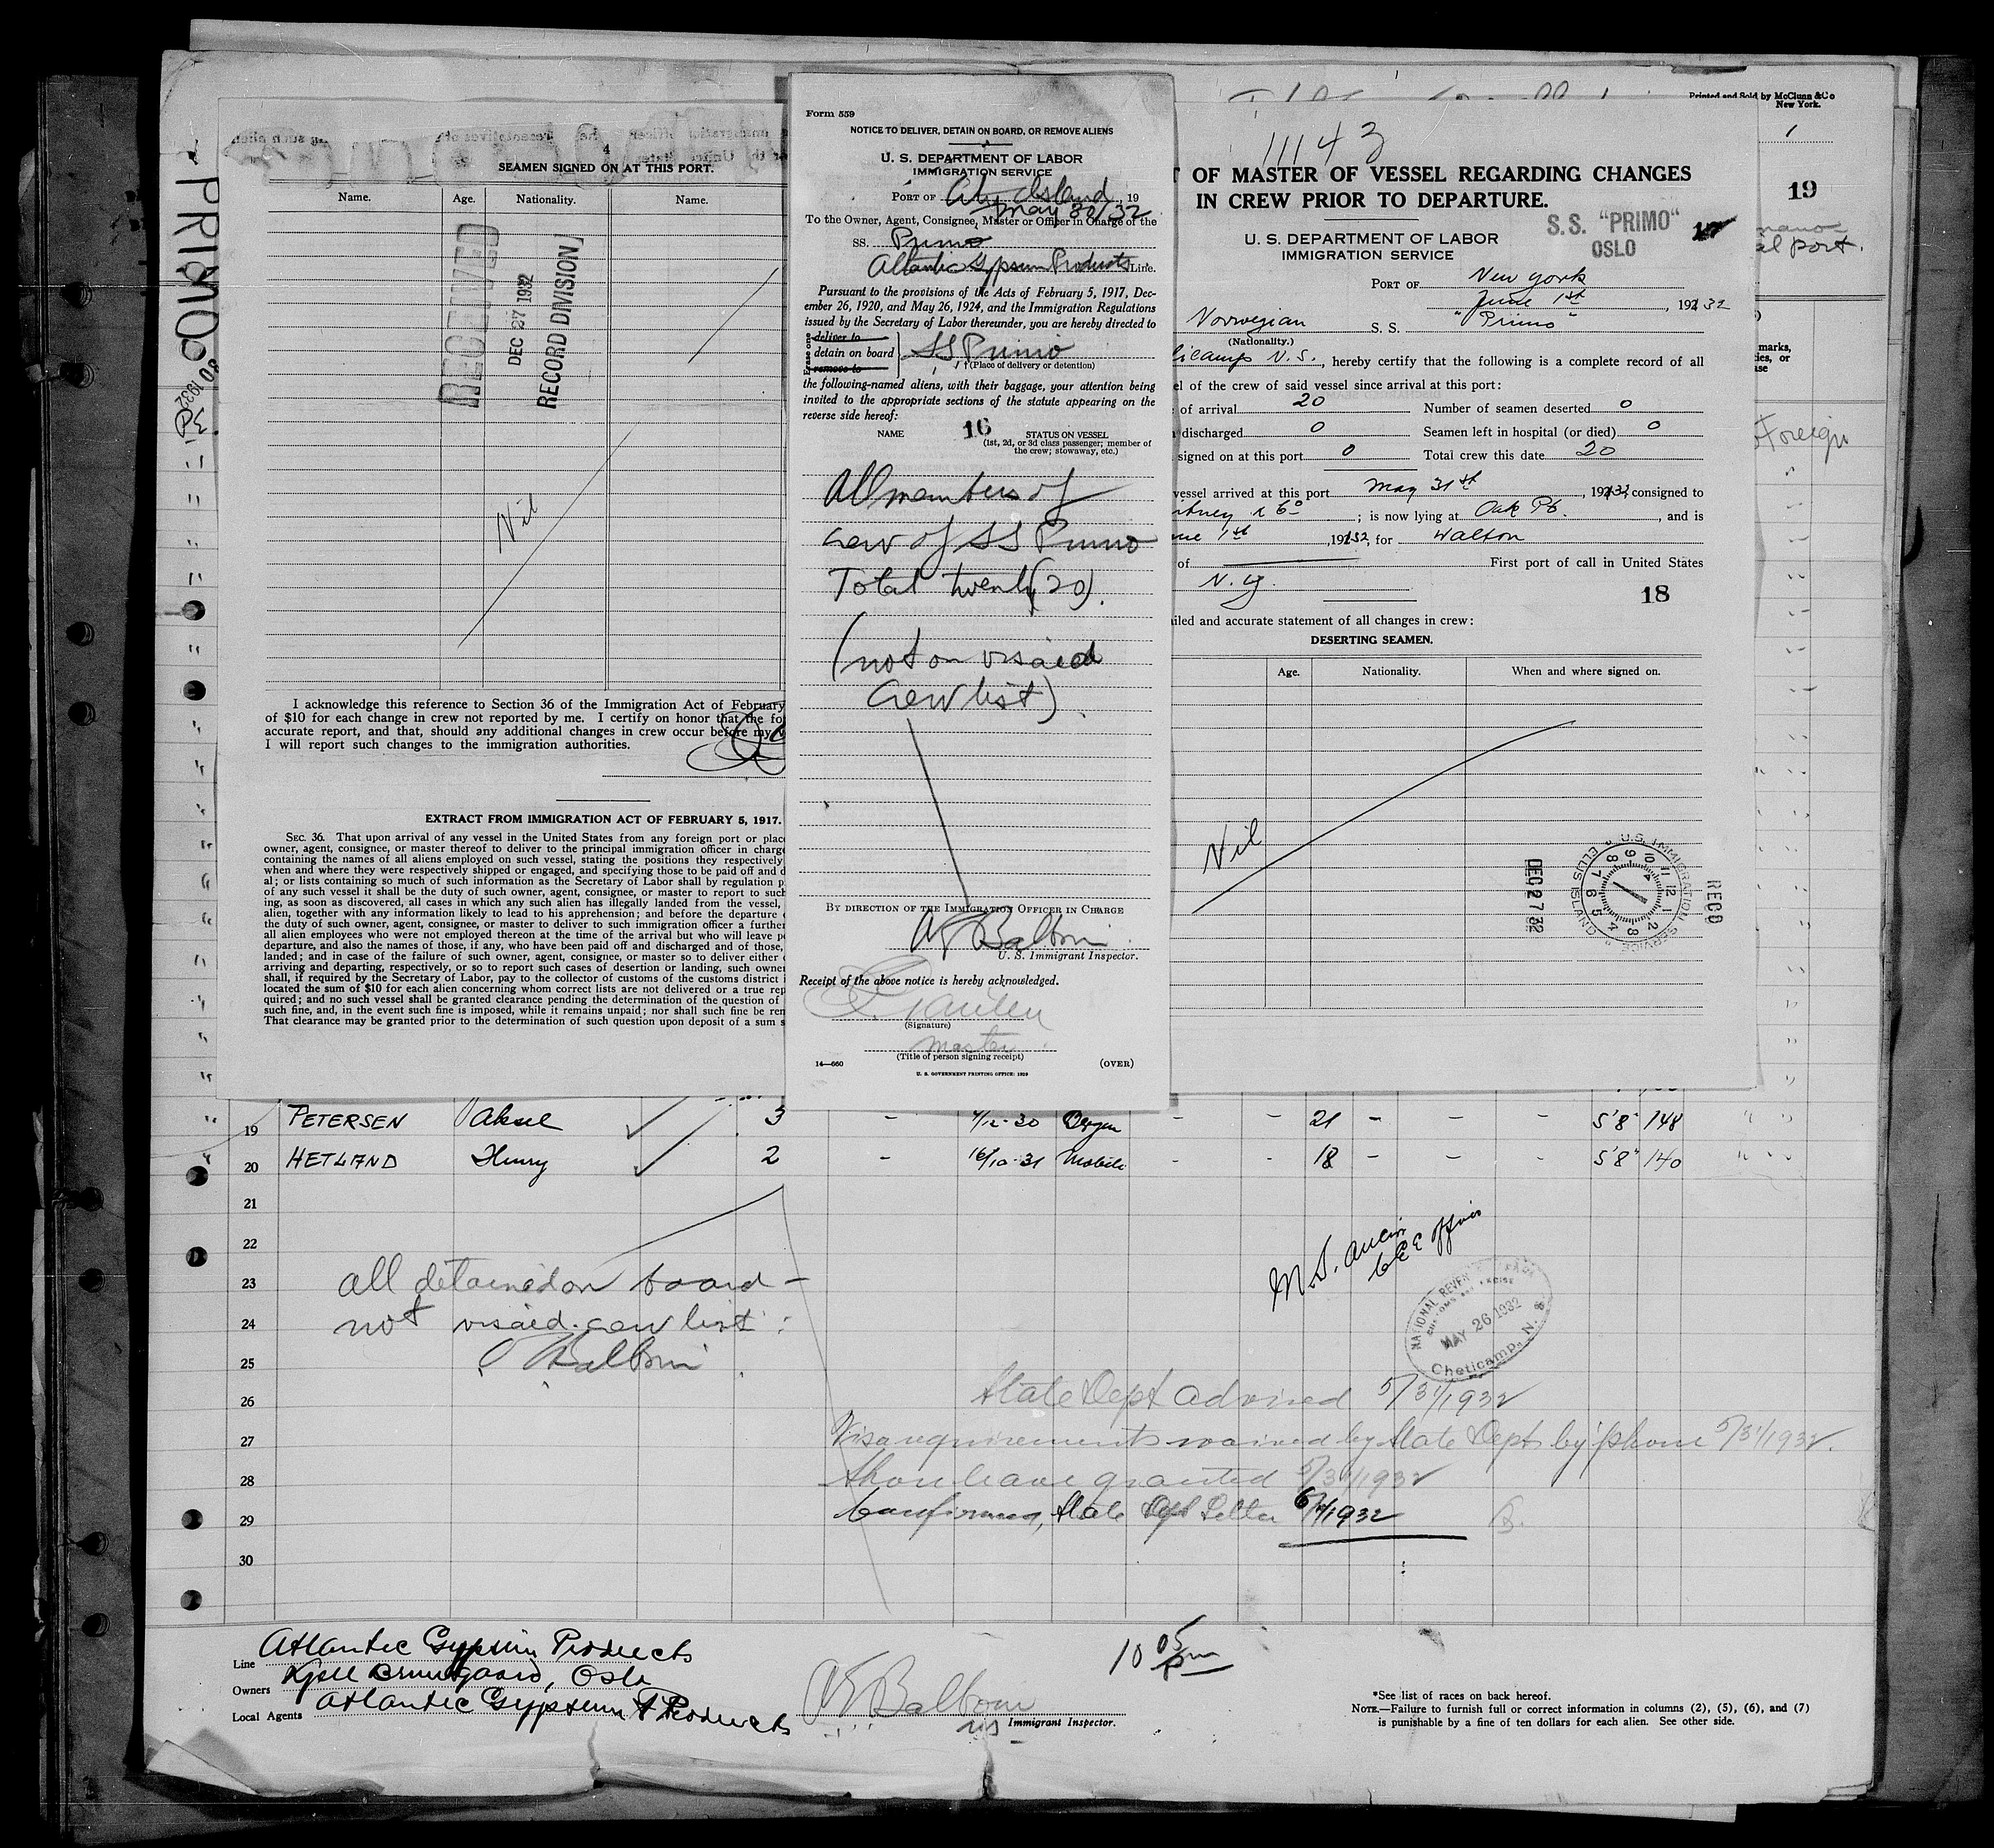 PRIMO
Printed and Sold by McClunn & Co
New York.
19
al port.
Foreign
4
SEAMEN SIGNED ON AT THIS PORT.
Name. Age. Nationality. Name.
RECEIVED
DEC 27 1932
RECORD DIVISION
Nil
I acknowledge this reference to Section 36 of the Immigration Act of February
of $10 for each change in crew not reported by me. I certify on honor that the fo
accurate report, and that, should any additional changes in crew occur before my v
I will report such changes to the immigration authorities.
EXTRACT FROM IMMIGRATION ACT OF FEBRUARY 5, 1917.
SEC. 36. That upon arrival of any vessel in the United States from any foreign port or plac
owner, agent, consignee, or master thereof to deliver to the principal immigration officer in charg
containing the names of all aliens employed on such vessel, stating the positions they respectively
when and where they were respectively shipped or engaged, and specifying those to be paid off and d
al; or lists containing so much of such information as the Secretary of Labor shall by regulation p
of any such vessel it shall be the duty of such owner, agent, consignee, or master to report to such
ing, as soon as discovered, all cases in which any such alien has illegally landed from the vessel,
alien, together with any information likely to lead to his apprehension; and before the departure
the duty of such owner, agent, consignee, or master to deliver to such immigration officer a further
all alien employees who were not employed thereon at the time of the arrival but who will leave p
departure, and also the names of those, if any, who have been paid off and discharged and of those,
landed; and in case of the failure of such owner, agent, consignee, or master so to deliver either
arriving and departing, respectively, or so to report such cases of desertion or landing, such owne
shall, if required by the Secretary of Labor, pay to the collector of customs of the customs district i
located the sum of $10 for each alien concerning whom correct lists are not delivered or a true rep
quired; and no such vessel shall be granted clearance pending the determination of the question of
such fine, and, in the event such fine is imposed, while it remains unpaid; nor shall such fine be ren
That clearance may be granted prior to the determination of such question upon deposit of a sum s
Form 559
NOTICE TO DELIVER, DETAIN ON BOARD, OR REMOVE ALIENS
U. S. DEPARTMENT OF LABOR
IMMIGRATION SERVICE
PORT OF City Island, 19
May 30/32
To the Owner, Agent, Consignee, Master or Officer in Charge of the
SS. Primo
Atlantic Gypsum Products Line.
Pursuant to the provisions of the Acts of February 5, 1917, Dec-
ember 26, 1920, and May 26, 1924, and the Immigration Regulations
issued by the Secretary of Labor thereunder, you are hereby directed to
Erase one
deliver to
detain on board SS Primo
remove to
(Place of delivery or detention)
the following-named aliens, with their baggage, your attention being
invited to the appropriate sections of the statute appearing on the
reverse side hereof:
NAME 16 STATUS ON VESSEL
(1st, 2d, or 3d class passenger; member of
the crew; stowaway, etc.)
All members of
crew of SS Primo
Total twenty (20).
(not on visaed
crew list)
BY DIRECTION OF THE IMMIGRATION OFFICER IN CHARGE
U. S. Immigrant Inspector.
Receipt of the above notice is hereby acknowledged.
(Signature)
Master
(Title of person signing receipt)
14—660 (OVER)
U. S. GOVERNMENT PRINTING OFFICE: 1928
11143
T OF MASTER OF VESSEL REGARDING CHANGES
IN CREW PRIOR TO DEPARTURE.
S.S. "PRIMO"
OSLO
U. S. DEPARTMENT OF LABOR
IMMIGRATION SERVICE
PORT OF New York
June 1st, 1932
Norwegian S. S. "Primo"
(Nationality.)
ticamp N.S., hereby certify that the following is a complete record of all
el of the crew of said vessel since arrival at this port:
of arrival 20 Number of seamen deserted 0
discharged 0 Seamen left in hospital (or died) 0
signed on at this port 0 Total crew this date 20
vessel arrived at this port May 31st, 1932, consigned to
; is now lying at Oak Pt., and is
ne 1st, 1932, for Walton
of First port of call in United States
N.Y.
18
iled and accurate statement of all changes in crew:
DESERTING SEAMEN.
Age. Nationality. When and where signed on.
Nil
U.S. IMMIGRATION SERVICE
ELLIS ISLAND
RECD
DEC 27 32
19 PETERSEN Aksel 3 - 4/12-30 Bergen - - 21 - - - 5'8" 148
20 HETLAND Henry 2 - 16/10-31 Mobile - - 18 - - - 5'8" 140
21
22
23 all detained on board -
24 not visaed crew list:
25
26 State Dept advised 5/31/1932
27 Visa requirements waived by State Dept by 'phone 5/31/1932.
28 Shore leave granted 5/31/1932
29 Confirmed, State Dept Letter
30
NATIONAL REVENUE
CUSTOMS AND EXCISE
MAY 26 1932
Cheticamp, N.S.
Line Atlantic Gypsum Products
Owners Oslo
Local Agents Atlantic Gypsum Products
10 05 pm
Immigrant Inspector.
*See list of races on back hereof.
NOTE.—Failure to furnish full or correct information in columns (2), (5), (6), and (7)
is punishable by a fine of ten dollars for each alien. See other side.